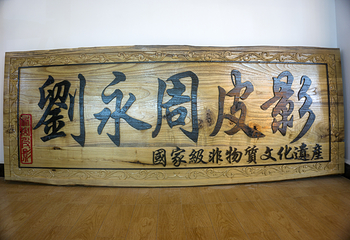 劉永周皮影
國家級非物質文化遺産